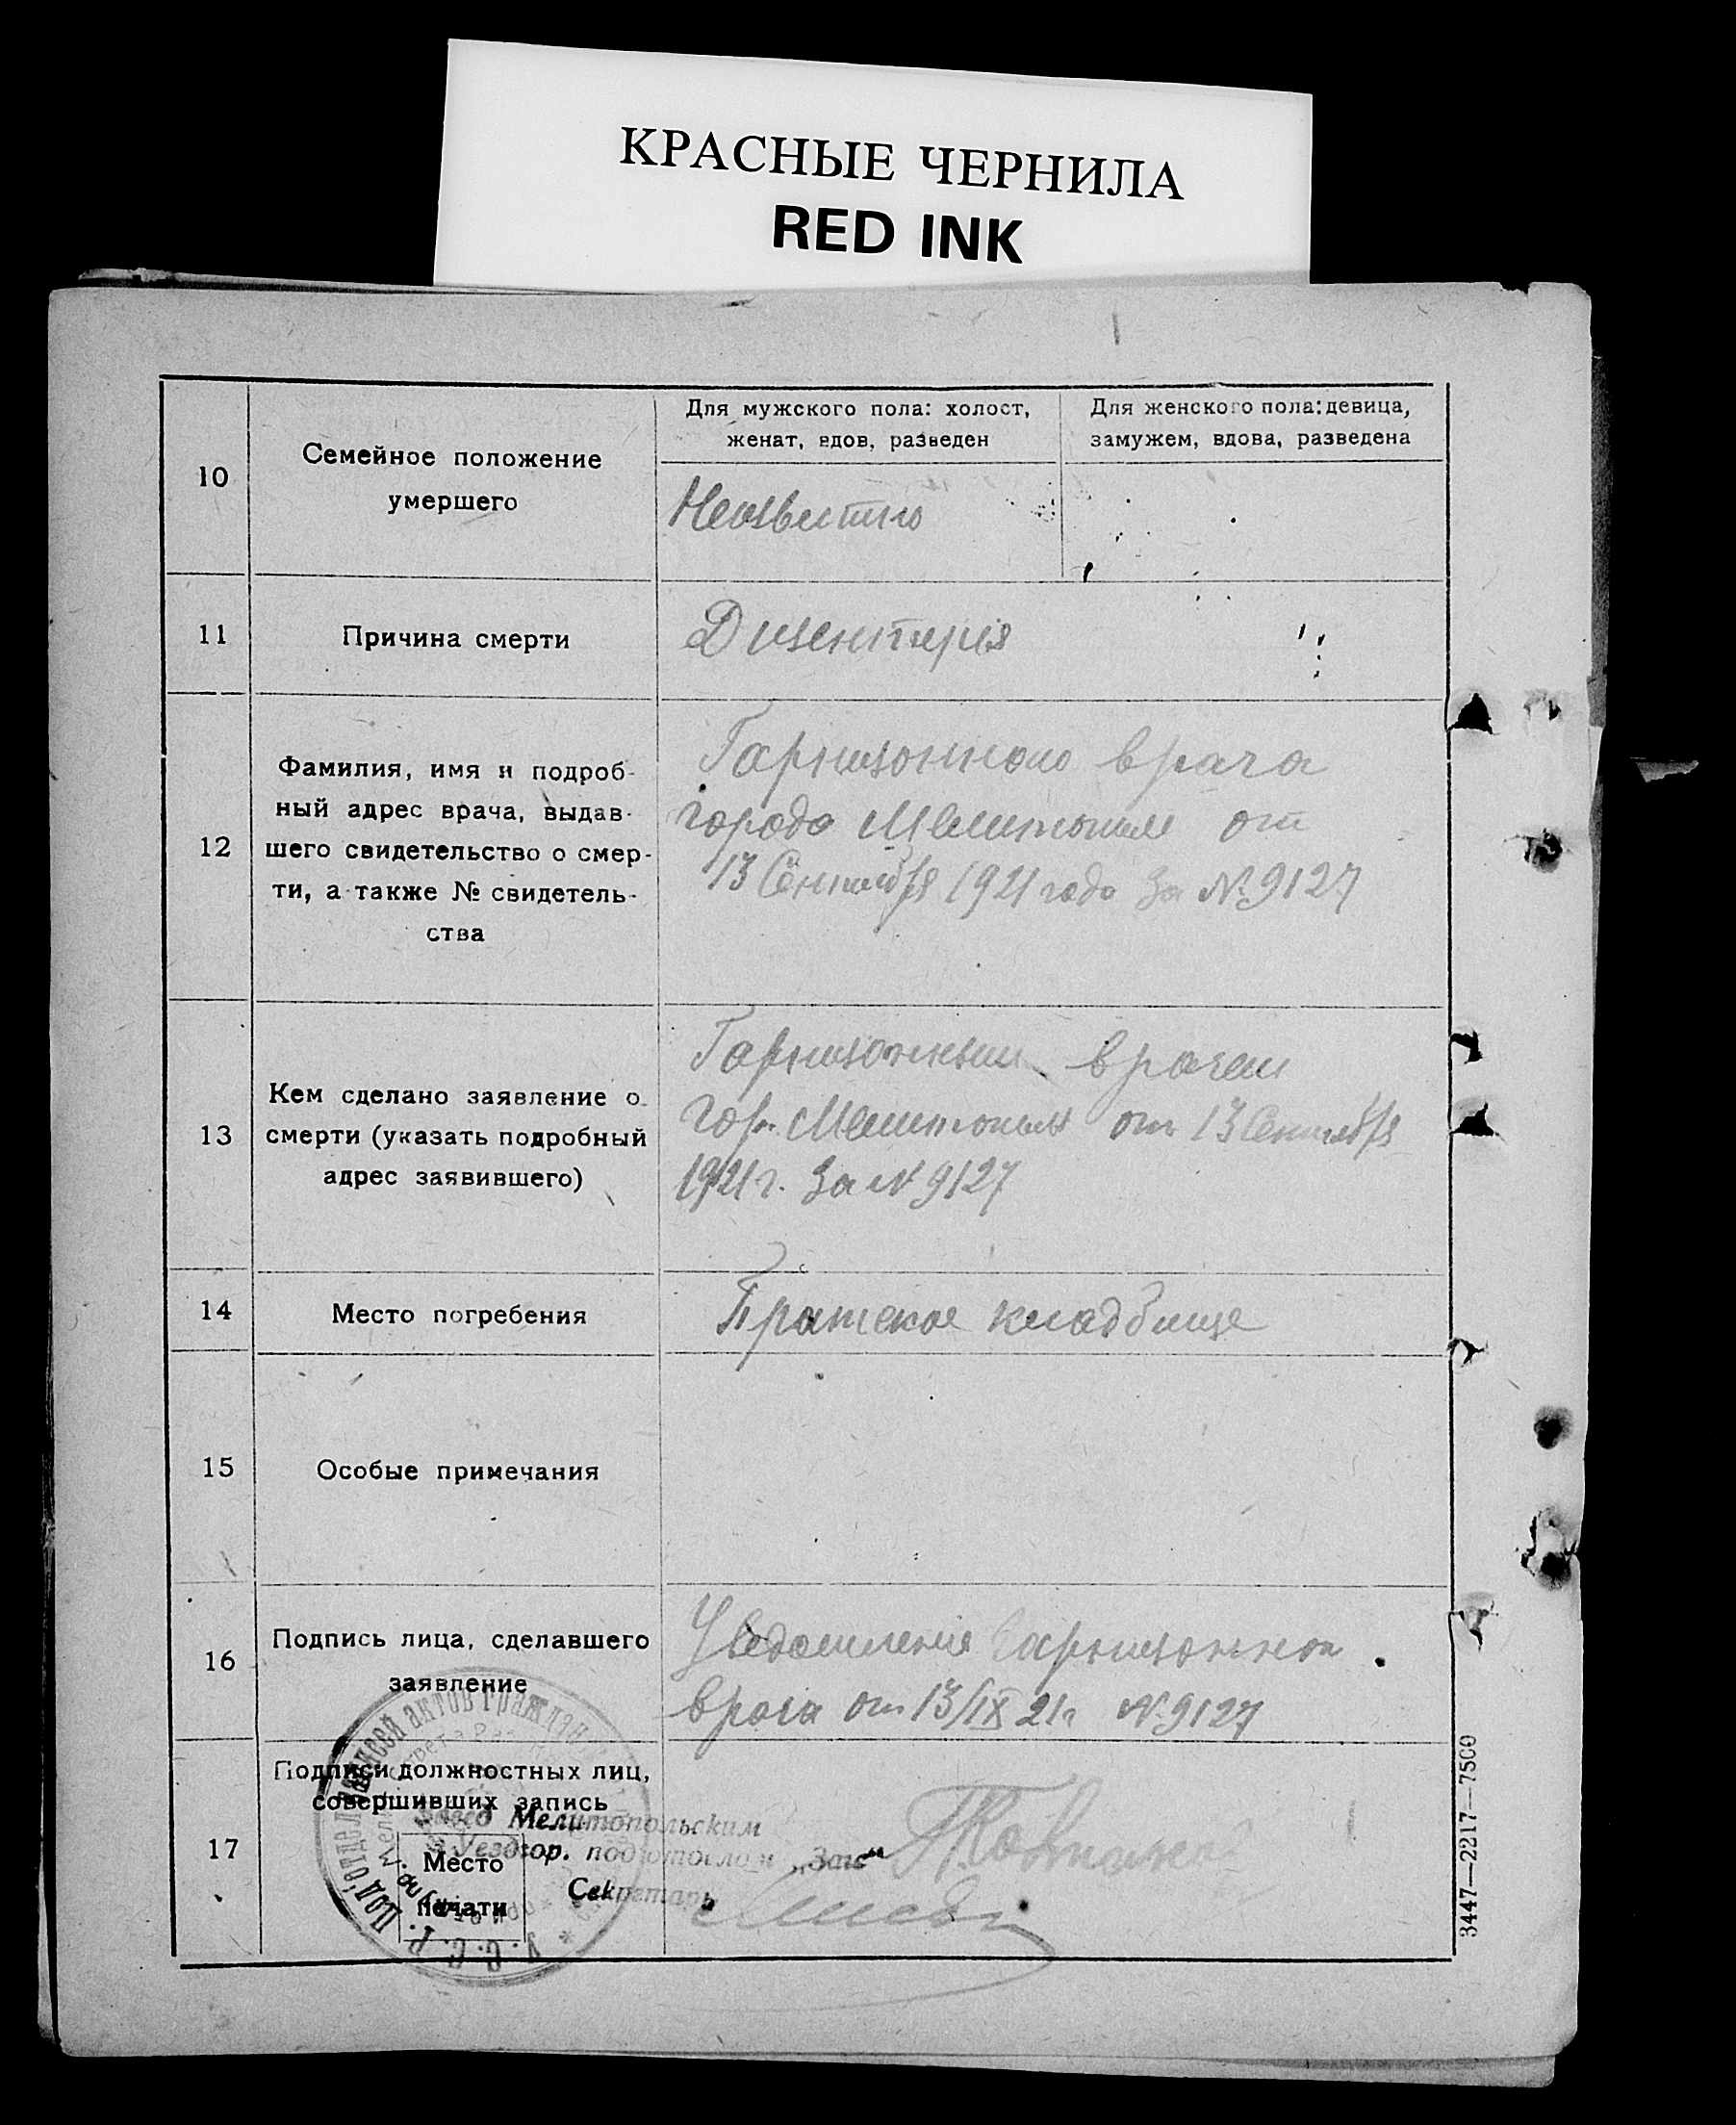 КРАСНЫЕ ЧЕРНИЛА
RED INK
10
Семейное положение
умершего
Для мужского пола: холост,
женат, вдов, разведен
Для женского пола: девица,
замужем, вдова, разведена
Неизвестно
11
Причина смерти
Дизентерия
12
Фамилия, имя и подроб-
ный адрес врача, выдав-
шего свидетельство о смер-
ти, а также № свидетель-
ства
Гарнизонного врача
города Мелитополя от
13 Сентября 1921 года За № 9127
13
Кем сделано заявление о
смерти (указать подробный
адрес заявившего)
Гарнизонным врачем
гор. Мелитополя от 13 Сентября
1921 г. За № 9127
14
Место погребения
Братское кладбище
15
Особые примечания
16
Подпись лица, сделавшего
заявление
Уведомление Гарнизонного
врача от 13/IX 21 г № 9127
17
Подписи должностных лиц,
совершивших запись
Завед Мелитопольским
Уездгор. подотделом „Загс“
Секретарь
Место
печати
Подотдел записей актов граждан
У. С. С. Р.
3447—2217—7500